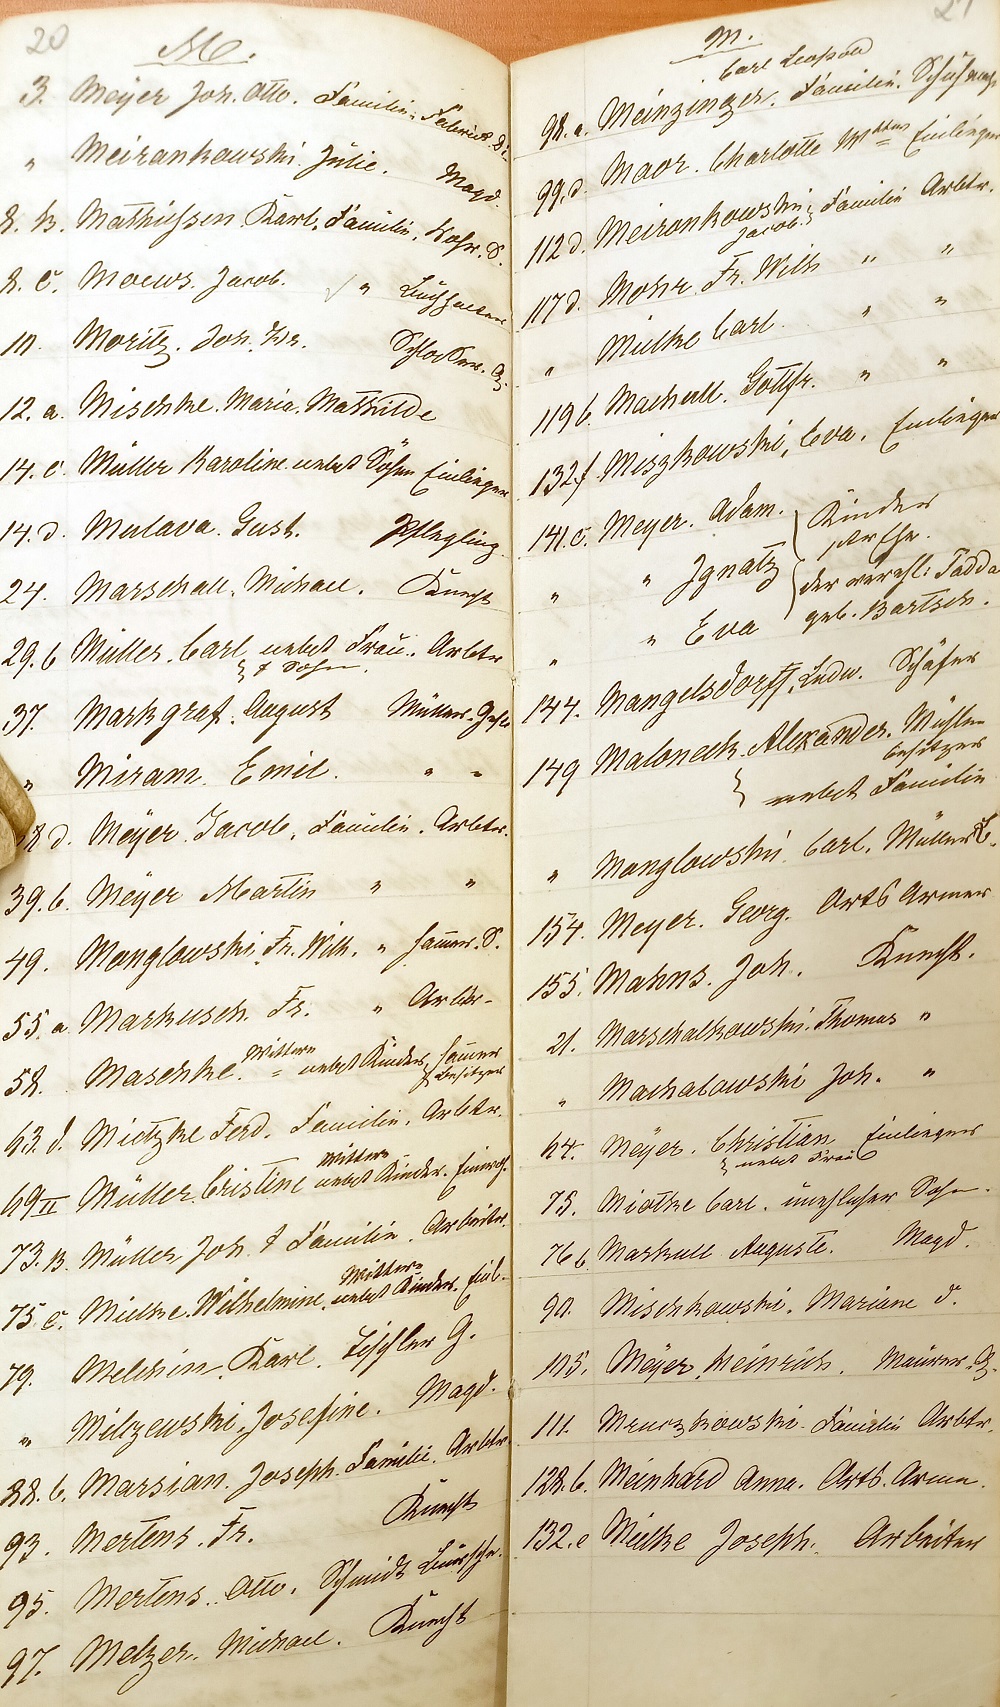 20
M.
3. Meyer Joh. Otto. Familie. Fabrik. B.
" Meirankowski. Julie. Magd.
8. b. Mathiessen. Karl. Familie.
8. c. Moews. Jacob. " Buchhalter
10. Moritz. Joh. Fr. Schlosser. G.
12. a. Mischke. Maria. Mathilde
14. c. Müller Karoline nebst Sohn Einlieger
14. d. Mulawa. Gust. Pflegling
24. Marschall. Michael. Knecht
29. b Müller. Carl nebst Frau. Arbtr
& Sohn.
37. Markgraf. August Müller. Geselle
" Miram. Emil. " "
38 d. Meyer. Jacob. Familie. Arbtr.
39. b. Meyer Martin " "
49. Manglowski. Fr. Wilh. "
55. a Markusch. Fr. " Arbtr.
58. Maschke. Wittwe nebst Kinder.
Besitzer
63. d. Mietzke Ferd. Familie. Arbtr.
69 II Müller Cristine Wittwe nebst Kinder. Einwoh.
73. B. Müller Joh. & Familie. Arbeiter.
75 c. Mielke. Wilhelmine. Wittwe nebst Kinder. Einl.
79. Melchin. Karl. Tischler G.
" Milzewski. Josefine. Magd.
88. b. Marsian. Joseph. Familie. Arbtr.
93. Mertens. Fr. Knecht
95. Mertens. Otto. Schmidt Bursche.
97. Melzer. Michael. Knecht
21
M.
Carl Leopold
98. a. Meinzinger. Familie.
99. d. Maor. Charlotte Wittwe Einlieger
112 d. Meirankowski Familie Arbtr.
Jacob.
117 d. Mohr. Fr. Wilh " "
" Mielke Carl. " "
119 b. Machull. Gottfr. " "
132 f. Miszkowski, Eva. Einlieger
141. c. Meyer. Adam. Kinder
" " Ignatz der verehl: Tadda
" " Eva geb. Bartsch.
144. Mangelsdorff. Ludw. Schäfer
149 Maloneck. Alexander. Mühlen
besitzer
nebst Familie
" Manglowski. Carl. Müller L.
154. Meyer. Georg. Orts Armer
155. Mahns. Joh. Knecht.
21. Marschalkowski. Thomas "
" Machalowski Joh. "
64. Meyer. Christian Einlieger
nebst Frau
75. Miotke Carl. unehlicher Sohn.
76 b Markull Auguste. Magd.
90. Mischkowski. Mariane d.
105. Meyer Heinrich. Maurer. G.
111. Familie Arbtr.
128. b. Meinhard Anna. Orts. Arme.
132. e Mielke Joseph. Arbeiter